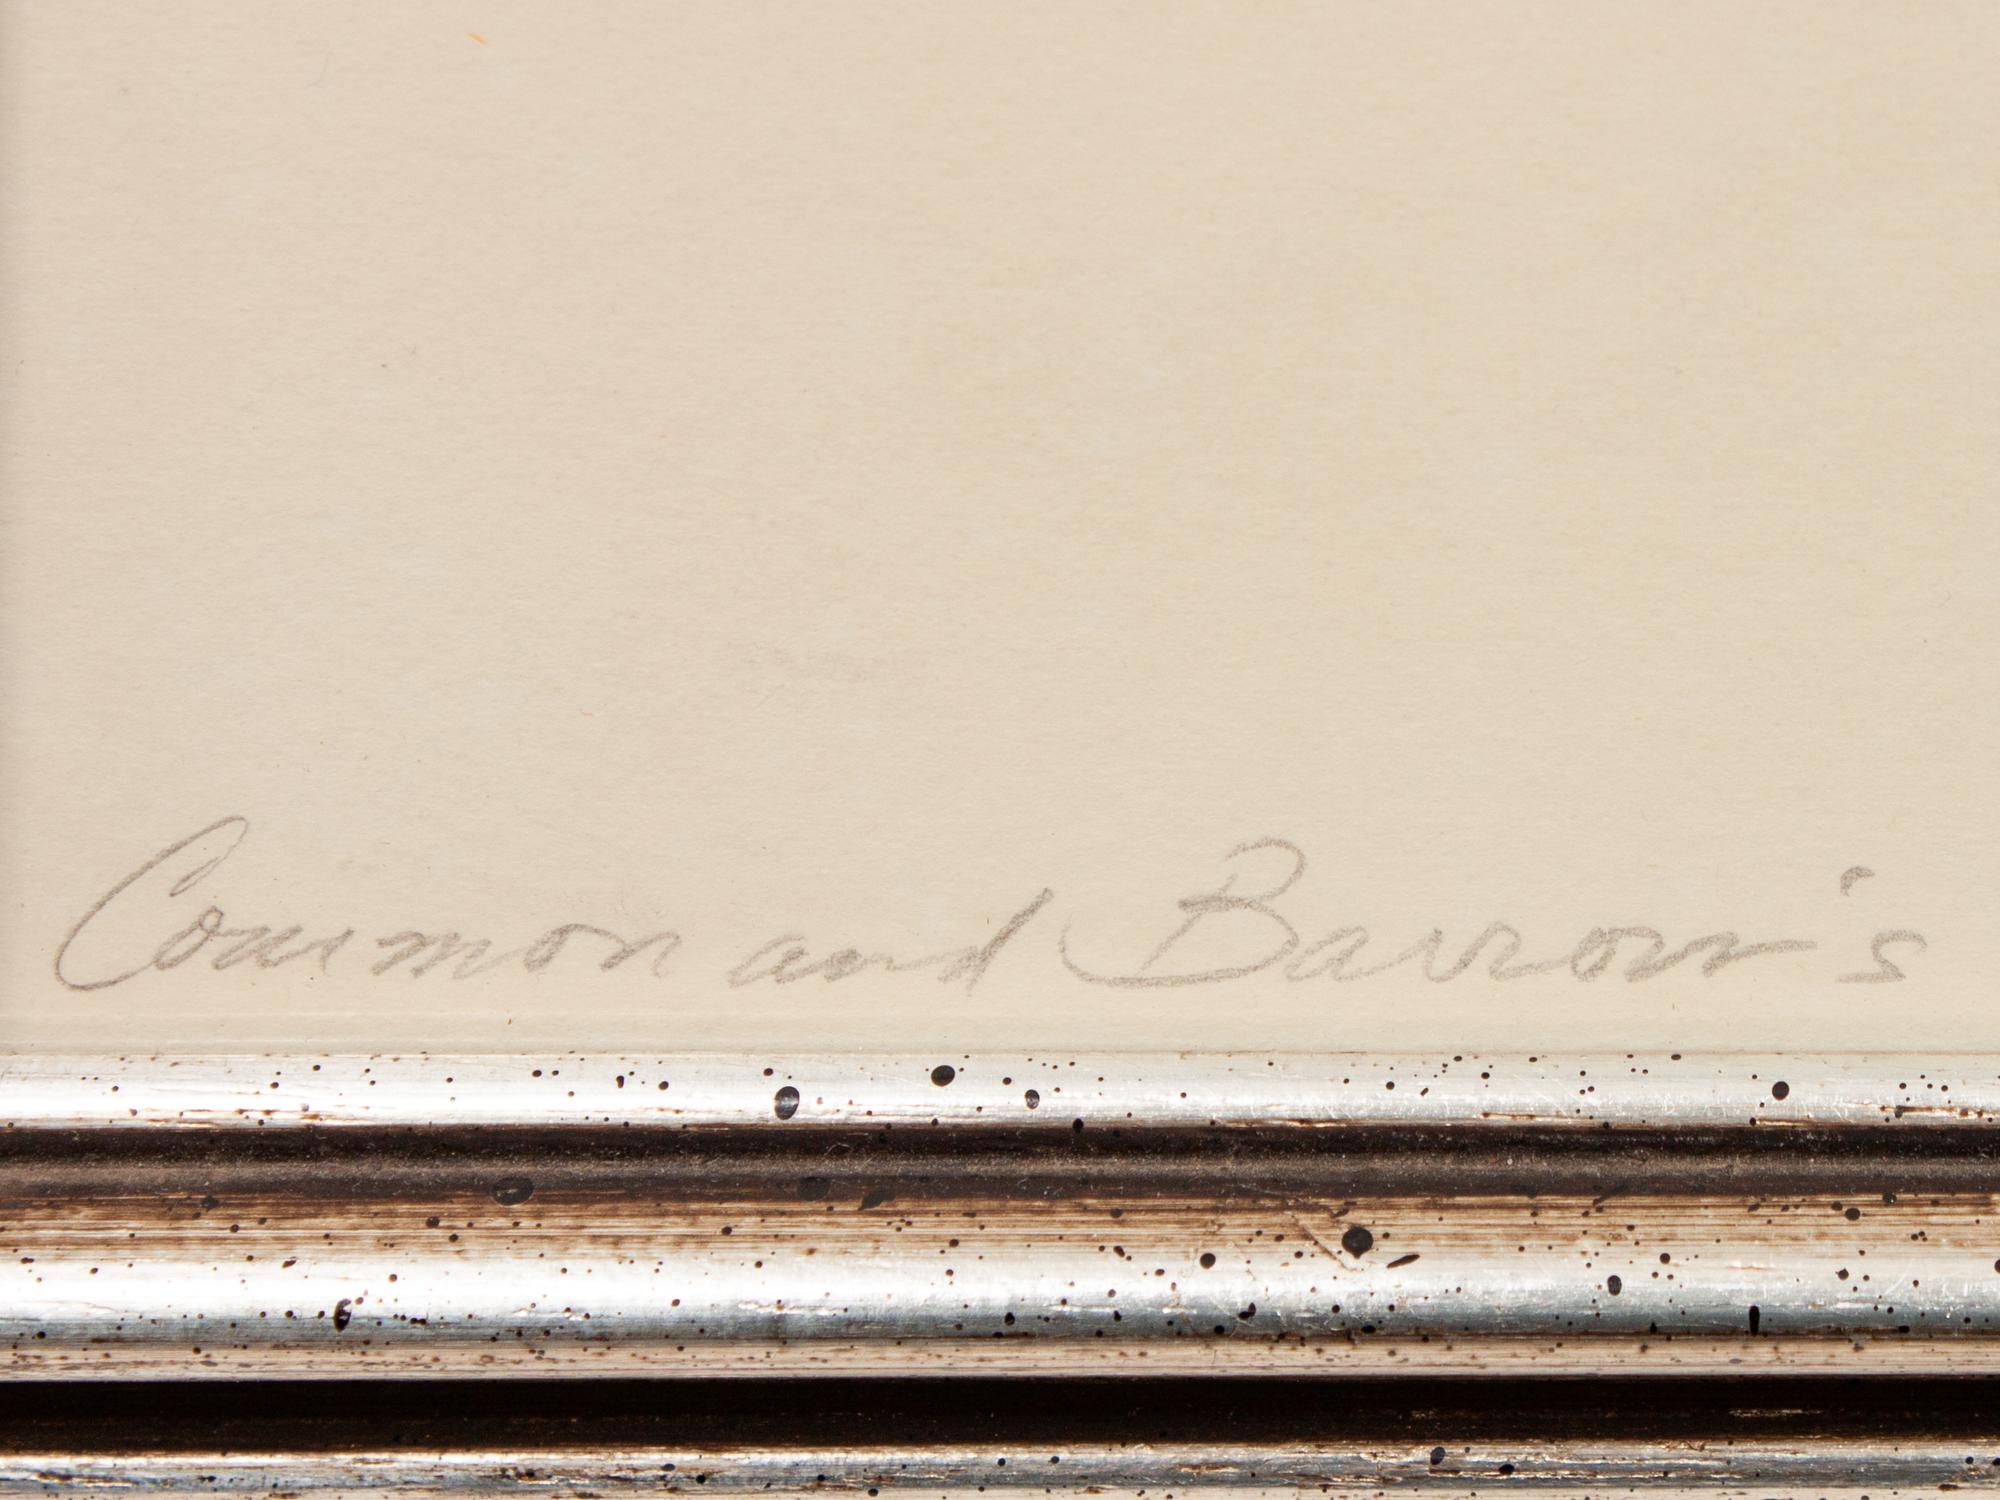 Common and Barrow's